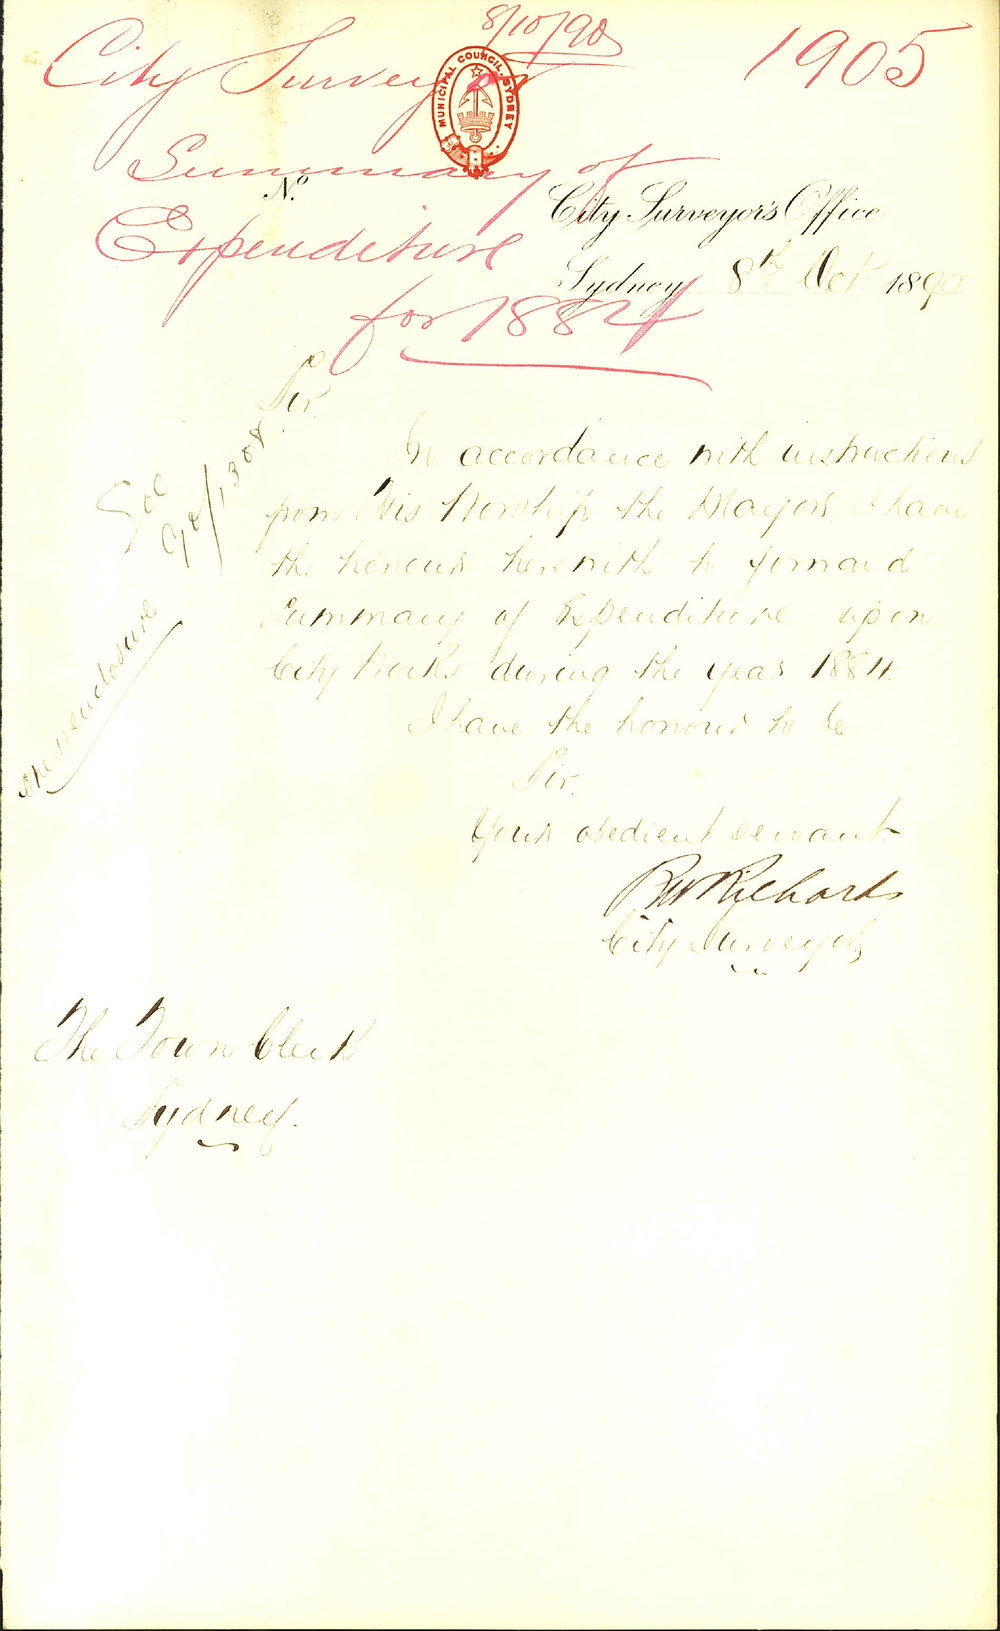 8/10/90
City Surveyor
1905
MUNICIPAL COUNCIL, SYDNEY
Summary of
Expenditure
for 1884
No.
City Surveyor's Office
Sydney 8th Oct 1890
Sir.
In accordance with instructions
from His Worship the Mayor I have
the honour herewith to forward
Summary of Expenditure upon
City Works during the year 1884.
I have the honour to be
Sir.
Your obedient servant
RW Richards
City Surveyor
The Town Clerk
Sydney.
See
90/1308
enclosure